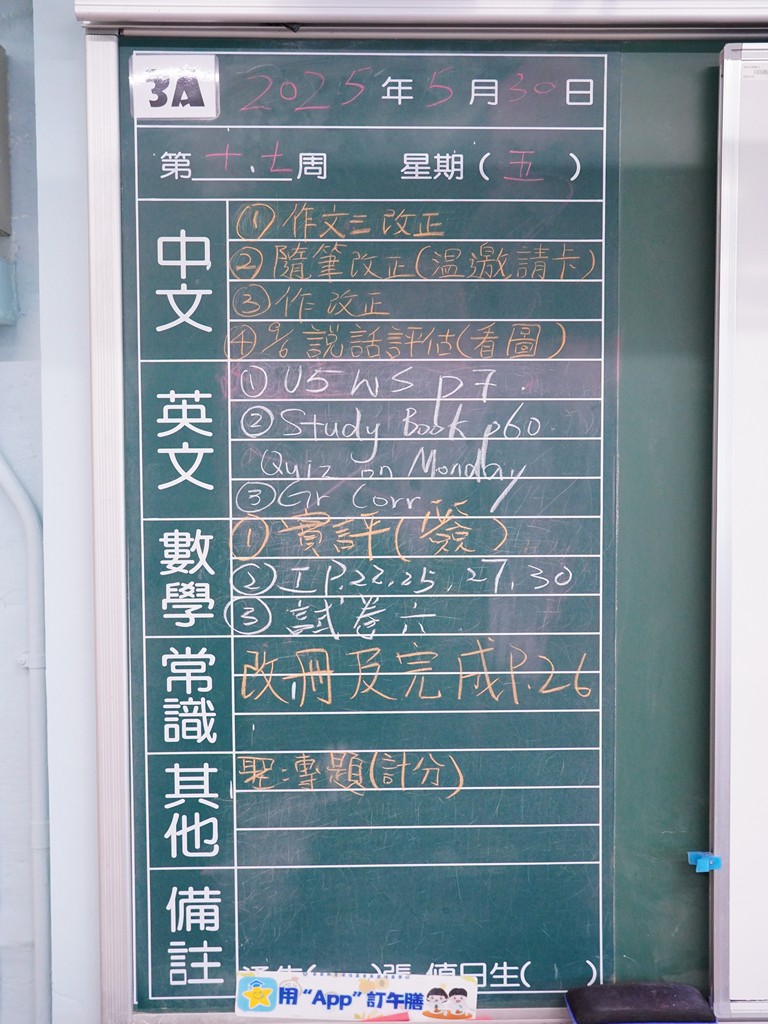 3A 2025年5月30日
第十.七周 星期(五)
中文
①作文三改正
②隨筆改正(溫邀請卡)
③作改正
④9/6說話評估(看圖)
英文
①U5 WS p7.
②Study Book p60
Quiz on Monday
③Gr Corr
數學
①實評(簽)
②I P.22.25,27,30
③試卷六
常識
改冊及完成P.26
其他
聖:專題(計分)
備註
張 值日生( )
用"App"訂午膳